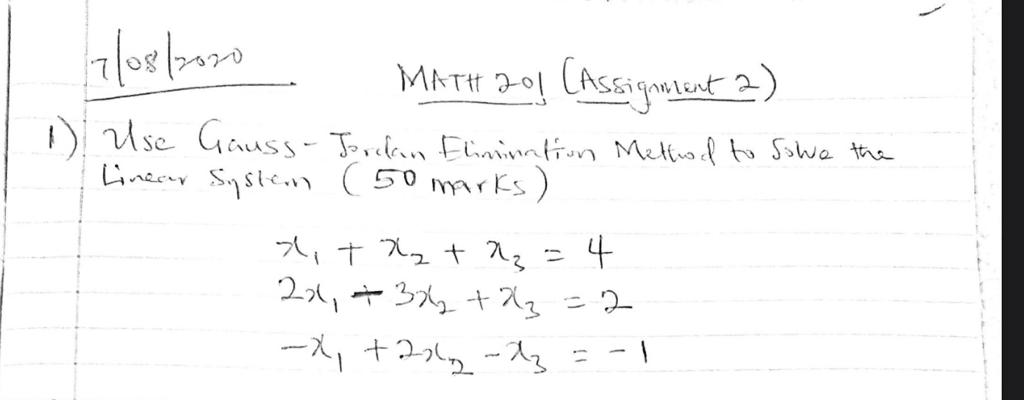 7/08/2020
MATH 201 (Assignment 2)
1) Use Gauss-Jordan Elimination Method to Solve the
Linear System (50 marks)
x₁ + x₂ + x₃ = 4
2x₁ + 3x₂ + x₃ = 2
-x₁ + 2x₂ - x₃ = -1